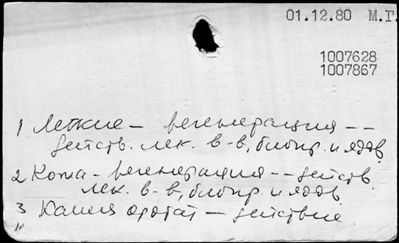 01.12.80 М.Г.
1007628
1007867
1 Легкие – регенерация --
действ. лек. в-в, биопр. и ядов
2 Кожа - регенерация -- действ.
лек. в-в, биопр. и ядов
3 Калия оротат – действие